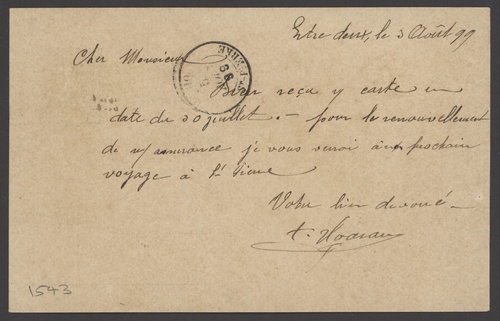 Entre deux, le 3 Août 99
Cher Monsieur
Bien reçu v/ carte en
date du 30 juillet. — pour le renouvellement
de m/ assurance je vous verrai à m/ prochain
voyage à St Pierre
Votre bien dévoué
T. Hoarau
ST PIERRE
5
99
1543